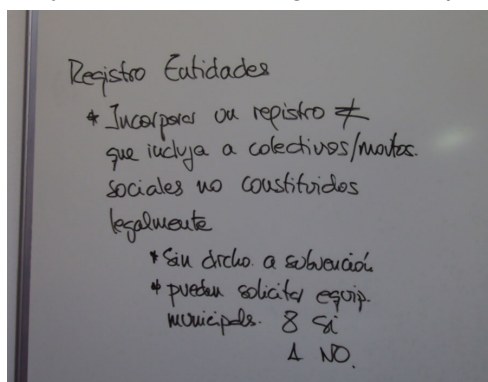 Registro Entidades
* Incorporar un registro ≠
que incluya a colectivos/movtos.
sociales no constituidos
legalmente
* Sin drcho. a subvención
* puedan solicitar equip.
municipals. 8 Si
1 NO.